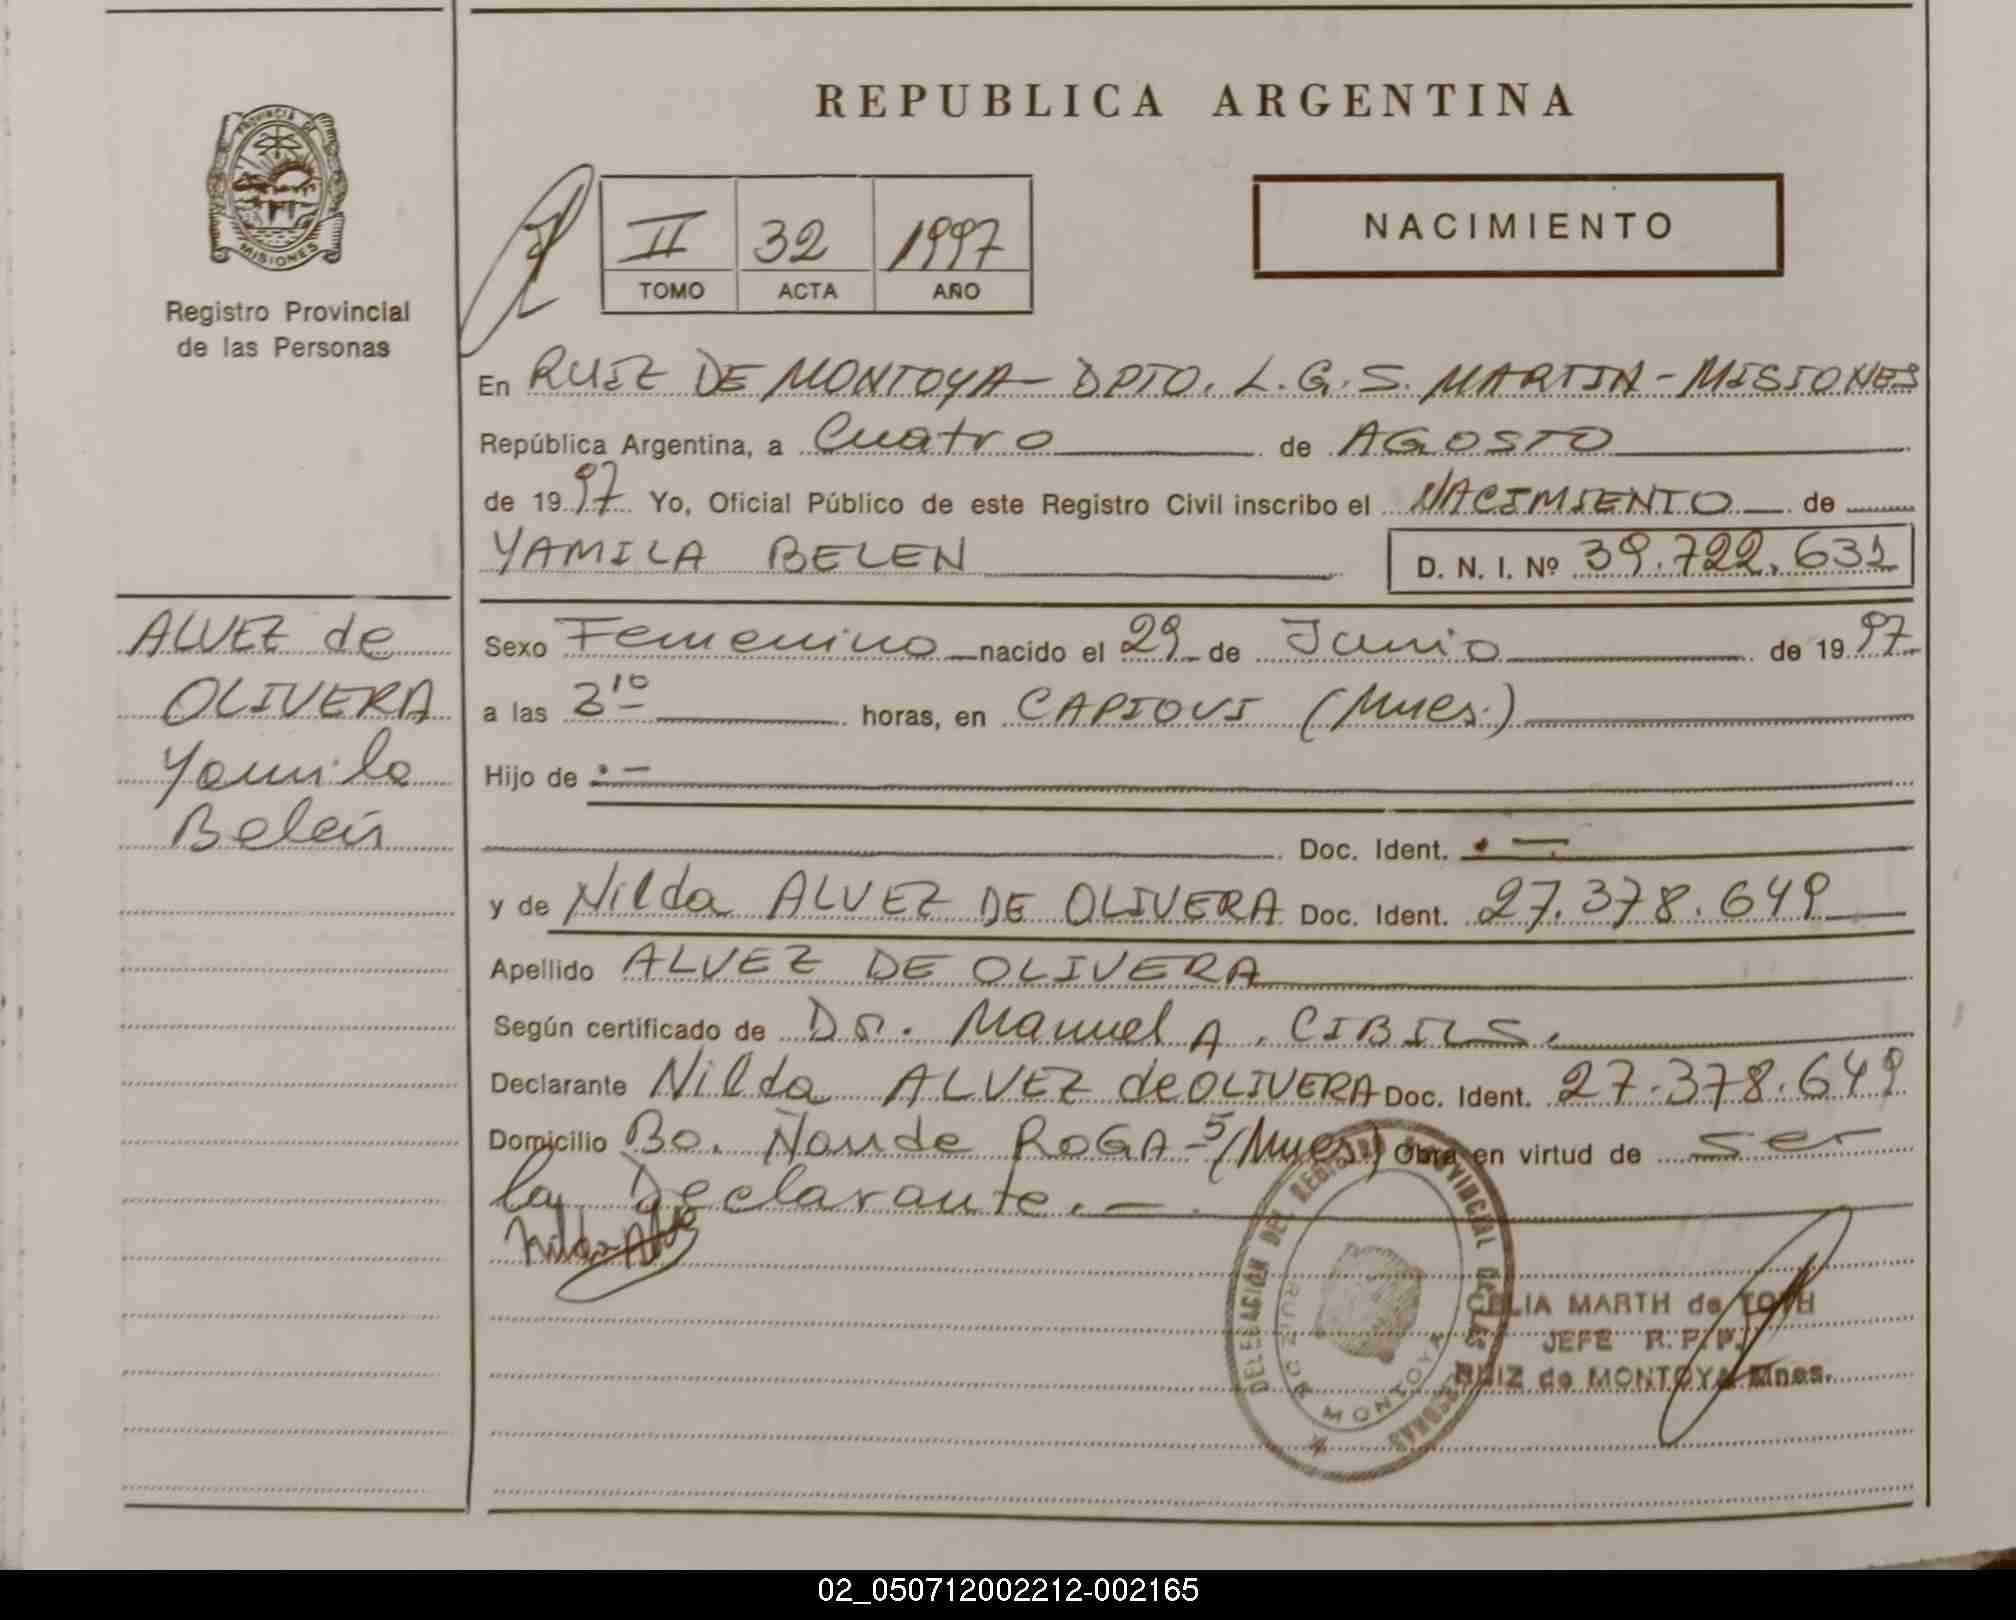 PROVINCIA DE
MISIONES
Registro Provincial
de las Personas
ALVEZ de
OLIVERA
Yamila
Belén
REPUBLICA ARGENTINA
II 32 1997
TOMO ACTA AÑO
NACIMIENTO
En RUIZ DE MONTOYA - DPTO. L.G.S. MARTIN - MISIONES
República Argentina, a Cuatro de AGOSTO
de 1997 Yo, Oficial Público de este Registro Civil inscribo el NACIMIENTO de
YAMILA BELEN D. N. I. Nº 39.722.631
Sexo Femenino nacido el 29 de Junio de 1997
a las 3 10 horas, en CAPIOVI (Mnes.)
Hijo de . -
Doc. Ident. . -
y de Nilda ALVEZ DE OLIVERA Doc. Ident. 27.378.649
Apellido ALVEZ DE OLIVERA
Según certificado de Dr. Manuel A. CIBILS.
Declarante Nilda ALVEZ de OLIVERA Doc. Ident. 27.378.649
Domicilio Bo. Ñande ROGA (Mnes) Obra en virtud de ser
la Declarante. -
Nilda
DELEGACIÓN DEL REGISTRO PROVINCIAL DE LAS PERSONAS
RUIZ DE MONTOYA
CELIA MARTH de TOTH
JEFE R. P. P.
RUIZ de MONTOYA Mnes.
02_050712002212-002165